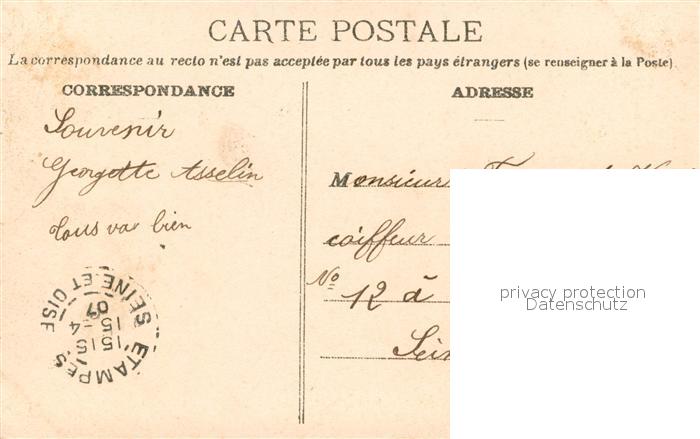 CARTE POSTALE
La correspondance au recto n'est pas acceptée par tous les pays étrangers (se renseigner à la Poste)
CORRESPONDANCE
ADRESSE
Souvenir
Georgette Asselin
tous va bien
Monsieur
coiffeur
No 12 à
ÉTAMPES
SEINE ET OISE
15 -4
07
privacy protection
Datenschutz